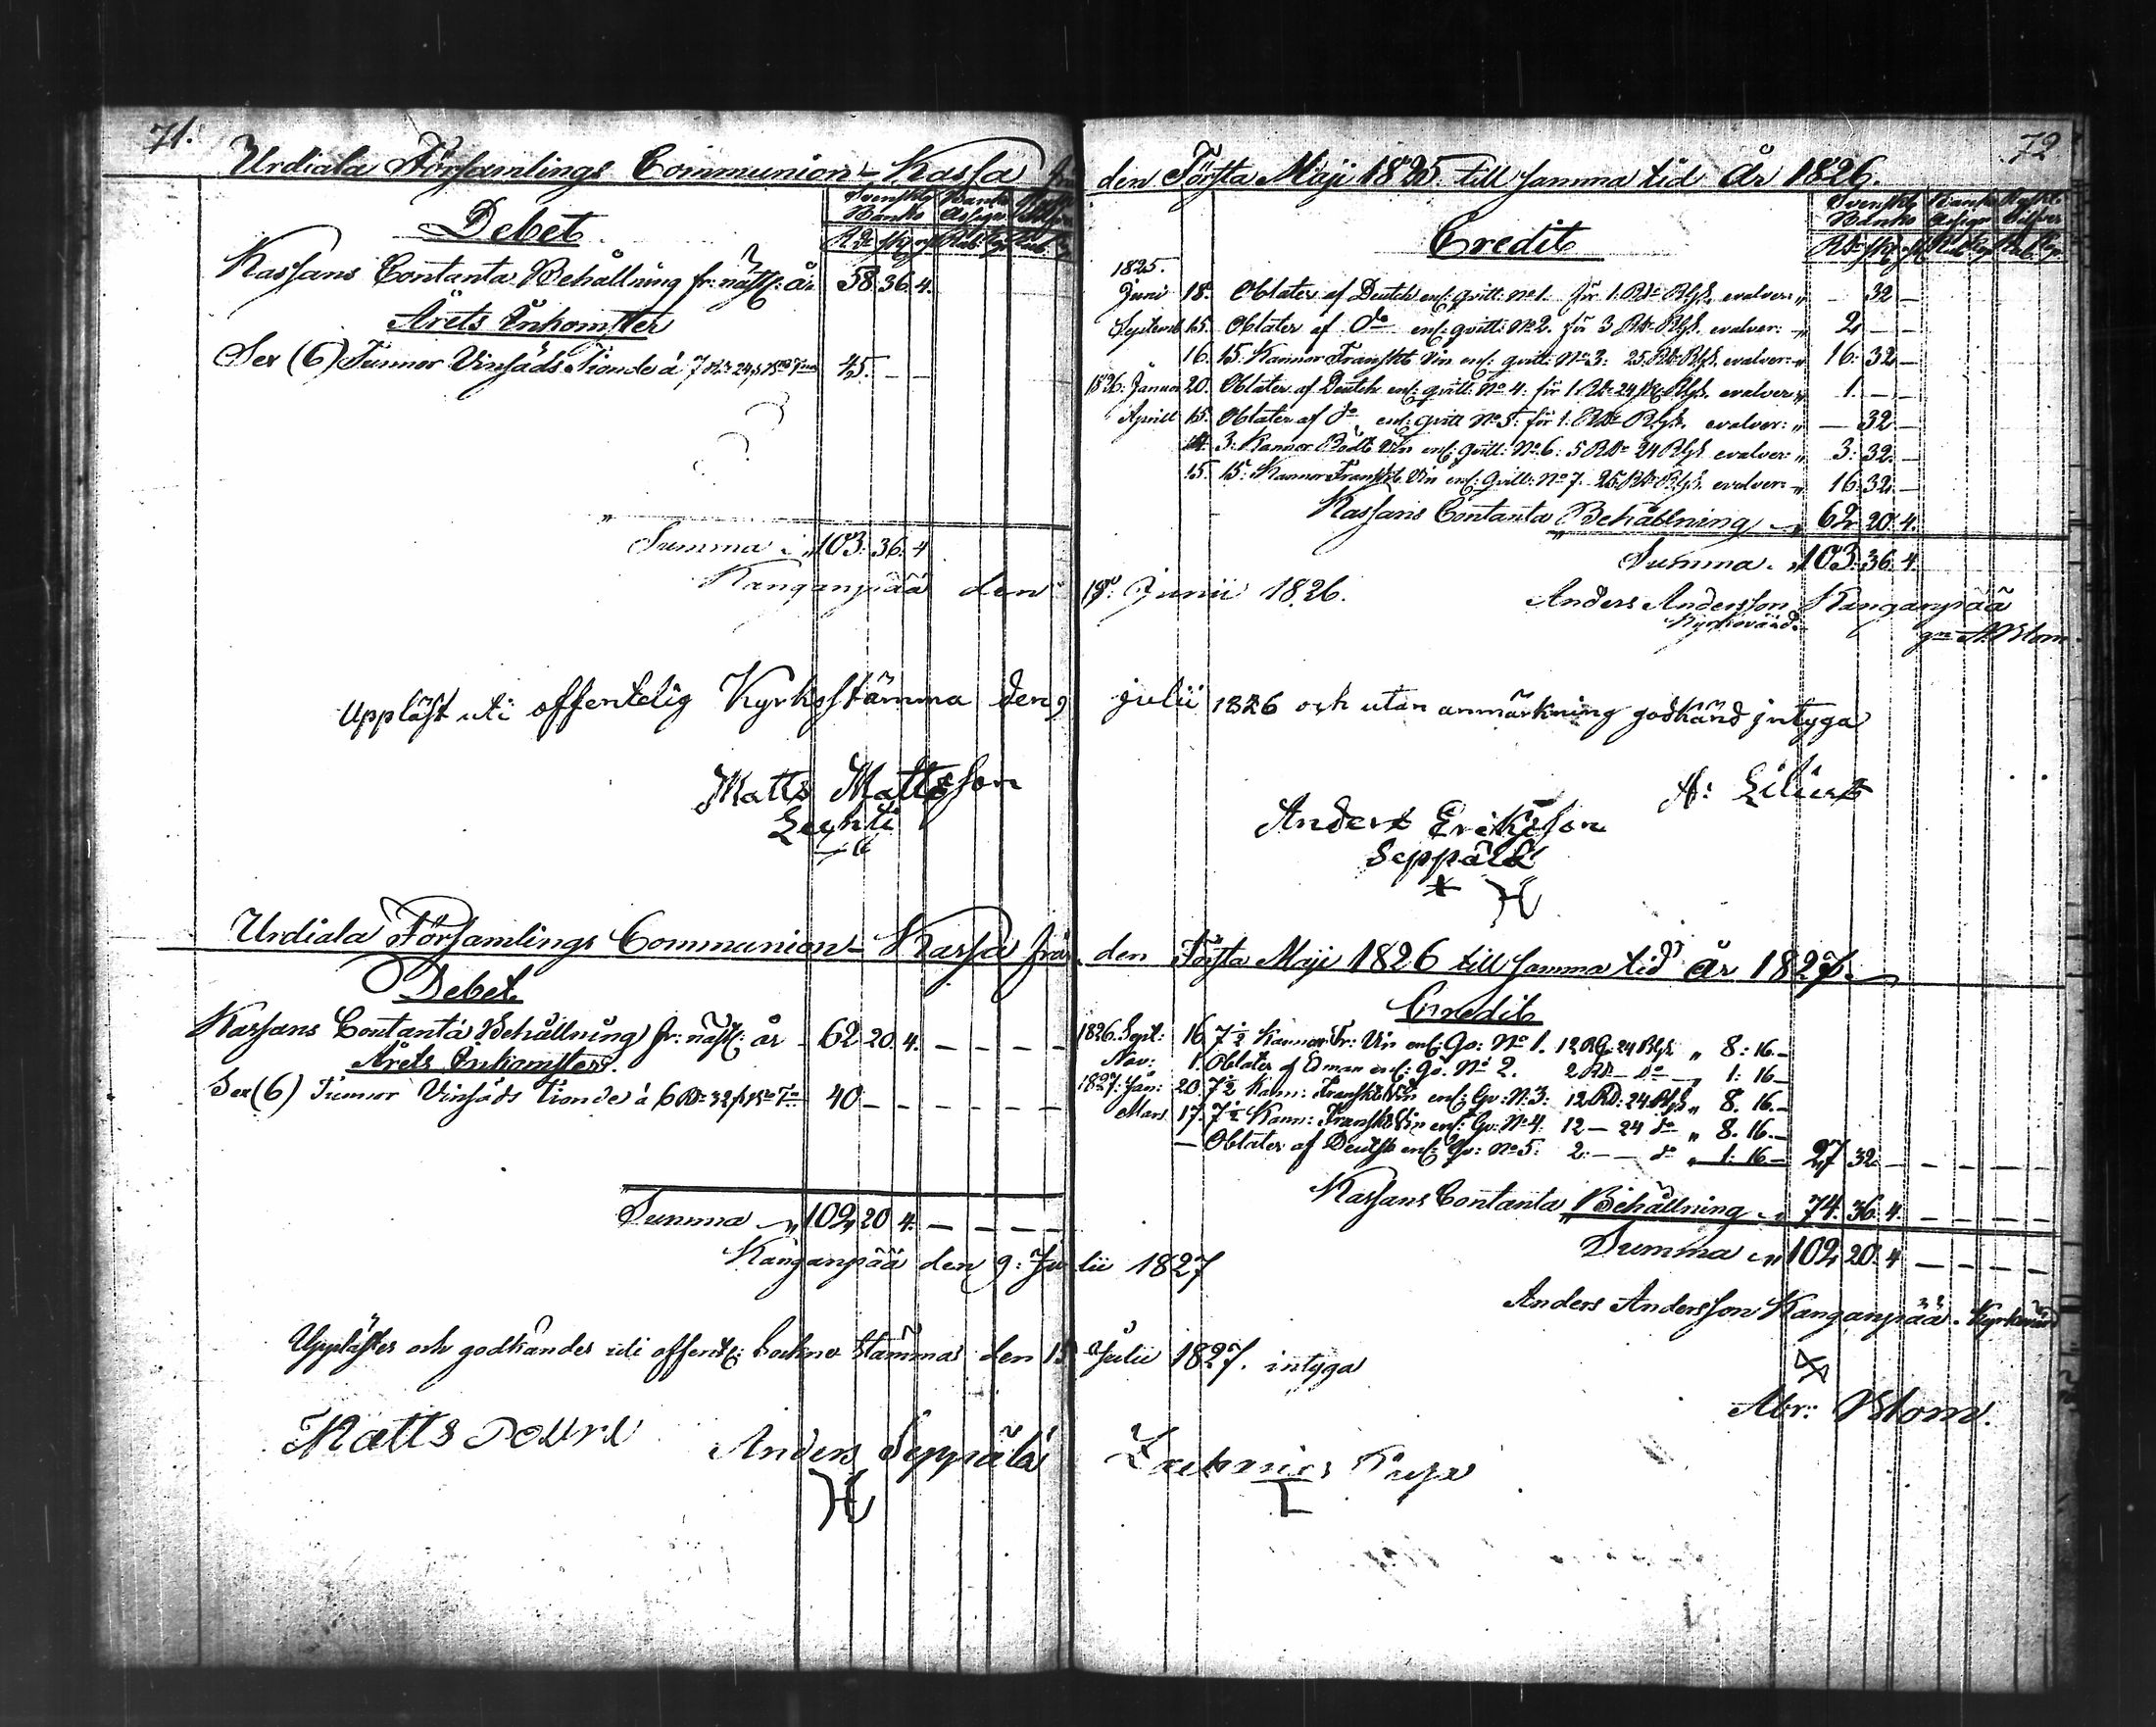 71.
Urdiala Församlings Communion-Kassa från
Debet
Svenskt Banko
Banko Assign:
Rdr sk: rst
Kassans Contanta Behållning fr: näst: år 58. 36. 4.
Årets Inkomster
Sex (6) Tunnor Vinsäds Tionde à 7 Rdr 24 s 45. — —
Summa „ 103. 36. 4
Kanganpää den
Uppläst uti offentelig Kyrkostämma den 9
Matts Mattsson
Lechti
Urdiala Församlings Communion-Kassa från
Debet.
Kassans Contanta Behållning fr: näst: år 62 20. 4. — — — —
Årets Inkomster.
Sex (6) Tunnor Vinsäds Tionde à 6 Rdr 32 s 40 — — — — — —
Summa „ 102 20 4. — — — —
Kanganpää den 9: Ju
Upplästes och godkändes uti offentl: Sockne Stämma den 15
Matts
Anders Seppälä
72
den Första Maji 1825 till samma tid År 1826.
Credit
Svenskt Banko
Banko Assign
Ryskt Silfver
1825.
Juni 18. Oblater af Deutch enl: qvitt: No 1. för 1. Rdr RGs. evalver: „ — 32 —
Septemb 15. Oblater af do enl: qvitt: No 2. för 3 Rdr RGs. evalver: „ 2, — —
16. 15. Kannor Franskt Vin enl: qvitt: No 3: 25 Rdr RGs. evalver: „ 16: 32 —
1826. Januar 20. Oblater af Deutch enl: qvitt: No 4: för 1. Rdr 24 sk RGs. evalver: „ 1. — —
Aprill 15. Oblater af do enl: qvitt No 5: för 1: Rdr RGs. evalver: „ — 32 —
3: Kannor Rödt Vin enl: qvitt: No 6: 5 Rdr 24 RGs evalver: „ 3: 32. —
15. 15: Kannor Franskt Vin enl: Qvitt: No 7. 25 Rdr RGs. evalver: „ 16: 32. —
Kassans Contanta Behållning „ 62. 20. 4.
Summa. „ 103. 36. 4.
19: Junii 1826.
Anders Andersson Kanganpää
Kyrkovärd.
gm A. Blom
julii 1826 och utan anmärkning godkänd intyga
A: Lilius
Anders Eriksson
Seppälä
den Första Maji 1826 till samma tid år 1827.
Credit
1826. Sept: 16 7½ Kannor Fr: Vin enl: Qv: No 1. 12 RG: 24 RGs „ 8: 16. —
Nov: 1. Oblater af Edman enl: Qv. No 2. 2 Rd — do — „ 1: 16 —
1827: Jan: 20. 7½ Kann: Franskt Vin enl: Qv: N: 3: 12 RD: 24 RGs „ 8. 16. —
Mars 17. 7½ Kann: Franskt Vin enl: Qv: No 4: 12 — 24 do „ 8. 16. —
— Oblater af Deutsh enl: Qv: No 5: 2: — — do „ 1: 16 — 27 32. — — — — —
Kassans Contanta Behållning „ 74. 36. 4. — — — —
Summa „ 102, 20. 4 — — — —
lii 1827
Anders Andersson Kanganpää. Kyrkovärd
Julii 1827. intyga
Abr: Blom.